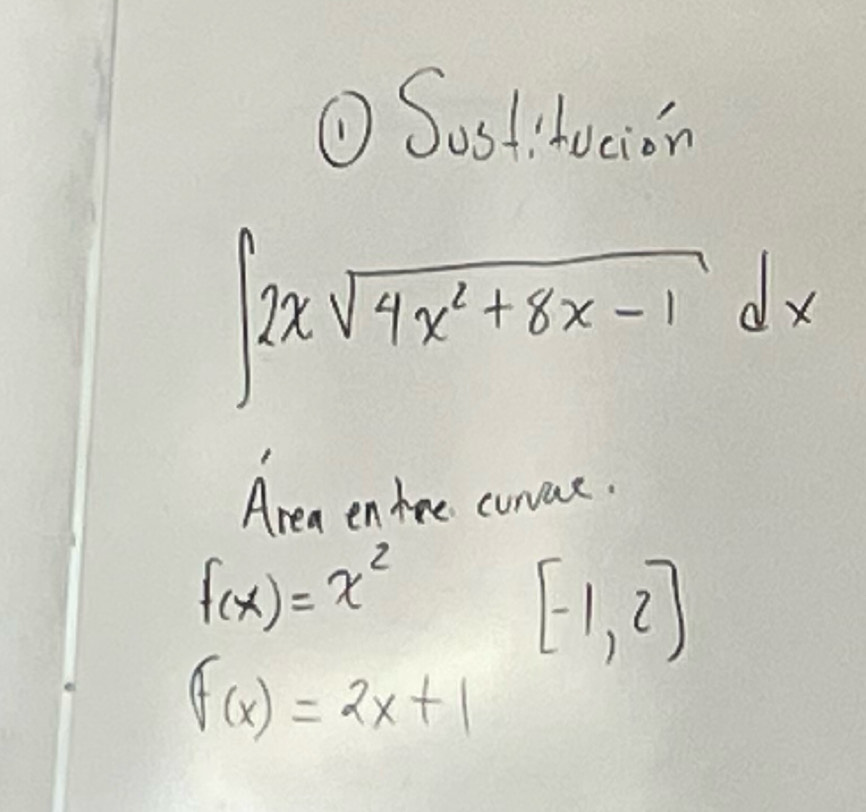 ① Sustitución
∫2x √(4x² + 8x - 1) dx
Área entre curvas.
f(x) = x² [-1, 2]
f(x) = 2x + 1